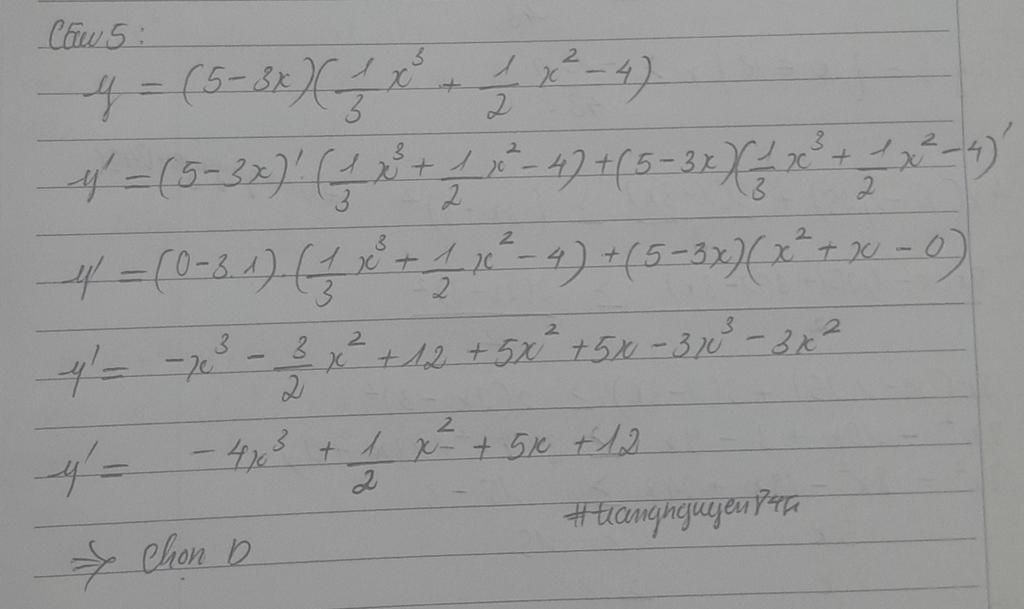 Câu 5:
y = (5-3x)(1/3 x³ + 1/2 x² - 4)
y' = (5-3x)'.(1/3 x³ + 1/2 x² - 4) + (5-3x)(1/3 x³ + 1/2 x² - 4)'
y' = (0-3.1).(1/3 x³ + 1/2 x² - 4) + (5-3x)(x² + x - 0)
y' = -x³ - 3/2 x² + 12 + 5x² + 5x - 3x³ - 3x²
y' = -4x³ + 1/2 x² + 5x + 12
⇒ Chọn D